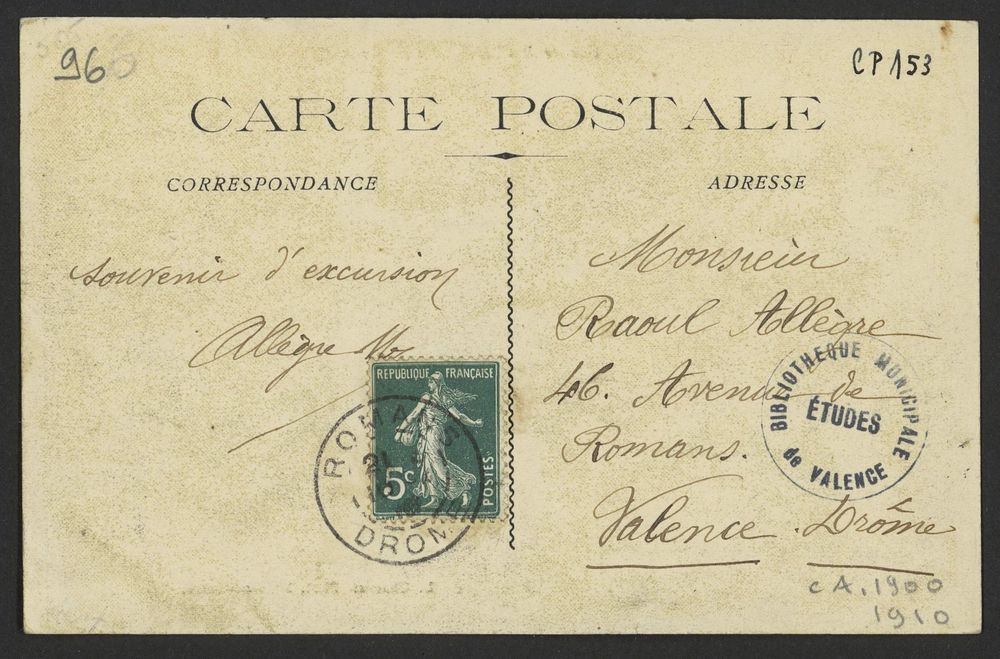 96
CP 153
CARTE POSTALE
CORRESPONDANCE
ADRESSE
souvenir d'excursion
Allègre
Monsieur
Raoul Allègre
46. Avenue de
Romans.
Valence. Drôme
RÉPUBLIQUE FRANÇAISE
5c
POSTES
ROMANS
21
DROME
BIBLIOTHEQUE MUNICIPALE
ÉTUDES
de VALENCE
CA. 1900
1910